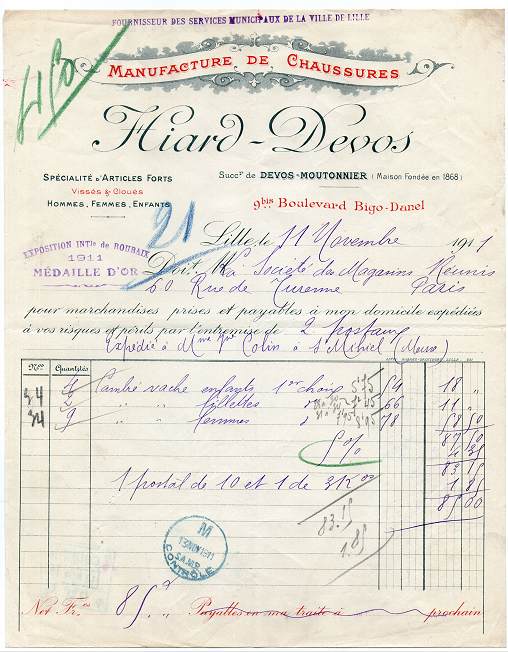 FOURNISSEUR DES SERVICES MUNICIPAUX DE LA VILLE DE LILLE
MANUFACTURE DE CHAUSSURES
Hiard-Devos
SPÉCIALITÉ D'ARTICLES FORTS
Vissés & Cloués
HOMMES, FEMMES, ENFANTS
Succr de DEVOS-MOUTONNIER (Maison Fondée en 1868)
9bis Boulevard Bigo-Danel
21
Lille, le 11 Novembre 1911
EXPOSITION INTle DE ROUBAIX
1911
MÉDAILLE D'OR
Doit M La Société des Magasins Réunis
60 Rue de Turenne Paris
pour marchandises prises et payables à mon domicile expédiées
à vos risques et périls par l'entremise de 2 postaux
Expédié à Mme Colin à St Mihiel (Meuse)
Nos Quantités
34 Cambré vache enfants 1er choix 5.75 54 18 "
2 " " fillettes 66 11 "
34 9 " " femmes 78 58 50
87 50
5 % 4 35
83 15
1 postal de 10 et 1 de 3K 1 85
85 00
83.15
1.85
M
13 NOV 1911
S.A.M.R.
CONTRÔLE
Net Frcs 85." Payables en ma traite à prochain